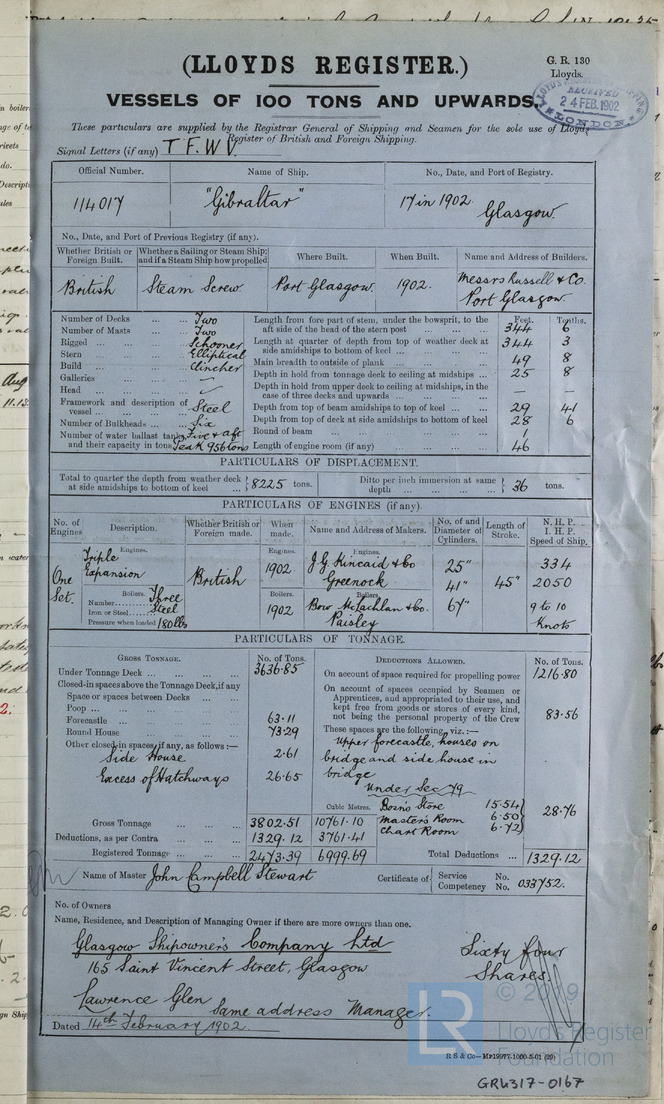 (LLOYDS REGISTER.)
G. R. 130
Lloyds.
VESSELS OF 100 TONS AND UPWARDS.
RECEIVED
24 FEB. 1902
LONDON
These particulars are supplied by the Registrar General of Shipping and Seamen for the sole use of Lloyds
Register of British and Foreign Shipping.
Signal Letters (if any) T.F.W.
Official Number. Name of Ship. No., Date, and Port of Registry.
114017 "Gibraltar" 17 in 1902. Glasgow.
No., Date, and Port of Previous Registry (if any).
Whether British or Foreign Built. Whether a Sailing or Steam Ship; and if a Steam Ship how propelled Where Built. When Built. Name and Address of Builders.
British Steam Screw. Port Glasgow. 1902. Messrs Russell & Co. Port Glasgow
Feet. Tenths.
Number of Decks ... ... Two
Number of Masts ... ... Two
Rigged ... ... Schooner
Stern Elliptical
Build ... ... Clincher
Galleries ... ... —
Head ... ...
Framework and description of vessel ... ... Steel
Number of Bulkheads ... ... Six
Number of water ballast tanks and their capacity in tons Five & aft Peak 956 tons
Length from fore part of stem, under the bowsprit, to the aft side of the head of the stern post ... ... 344 6
Length at quarter of depth from top of weather deck at side amidships to bottom of keel ... ... 344 3
Main breadth to outside of plank ... ... 49 8
Depth in hold from tonnage deck to ceiling at midships ... 25 8
Depth in hold from upper deck to ceiling at midships, in the case of three decks and upwards ... ... — —
Depth from top of beam amidships to top of keel ... ... 29 41
Depth from top of deck at side amidships to bottom of keel 28 6
Round of beam ... ... 1
Length of engine room (if any) ... ... 46
PARTICULARS OF DISPLACEMENT.
Total to quarter the depth from weather deck at side amidships to bottom of keel ... 8225 tons. Ditto per inch immersion at same depth ... ... 36 tons.
PARTICULARS OF ENGINES (if any).
No. of Engines Description. Whether British or Foreign made. When made. Name and Address of Makers. No. of and Diameter of Cylinders. Length of Stroke. N. H. P. I. H. P. Speed of Ship.
One Set.
Engines.
Triple Expansion
British
Engines.
1902
Engines.
J. G. Kincaid & Co
Greenock
25"
41"
67"
45"
334
2050
9 to 10
Knots
Boilers.
Number Three
Iron or Steel Steel
Pressure when loaded 180 lbs
Boilers.
1902
Boilers.
Bow McLachlan & Co.
Paisley
PARTICULARS OF TONNAGE.
GROSS TONNAGE. No. of Tons.
Under Tonnage Deck ... ... 3636.85
Closed-in spaces above the Tonnage Deck, if any
Space or spaces between Decks ... ...
Poop ... ...
Forecastle ... ... 63.11
Round House ... ... 73.29
Other closed-in spaces, if any, as follows :—
Side House 2.61
Excess of Hatchways 26.65
Cubic Metres.
Gross Tonnage ... ... 3802.51 10761.10
Deductions, as per Contra ... ... 1329.12 3761.41
Registered Tonnage ... ... 2473.39 6999.69
DEDUCTIONS ALLOWED. No. of Tons.
On account of space required for propelling power 1216.80
On account of spaces occupied by Seamen or Apprentices, and appropriated to their use, and kept free from goods or stores of every kind, not being the personal property of the Crew 83.56
These spaces are the following, viz. :—
Upper forecastle, houses on
bridge and side house in
bridge
Under Sec 79
Bosns Store 15.54
Master's Room 6.50
Chart Room 6.72
28.76
Total Deductions ... 1329.12
Name of Master John Campbell Stewart
Certificate of Service No.
Competency No. 033752.
No. of Owners
Name, Residence, and Description of Managing Owner if there are more owners than one.
Glasgow Shipowners Company Ltd
165 Saint Vincent Street, Glasgow
Sixty four
Shares.
Lawrence Glen same address Manager.
Dated 14th February 1902.
LR
© 2019
Lloyd's Register
Foundation
R S & Co—M 19977-1000-5-01 (29)
GRL317-0167